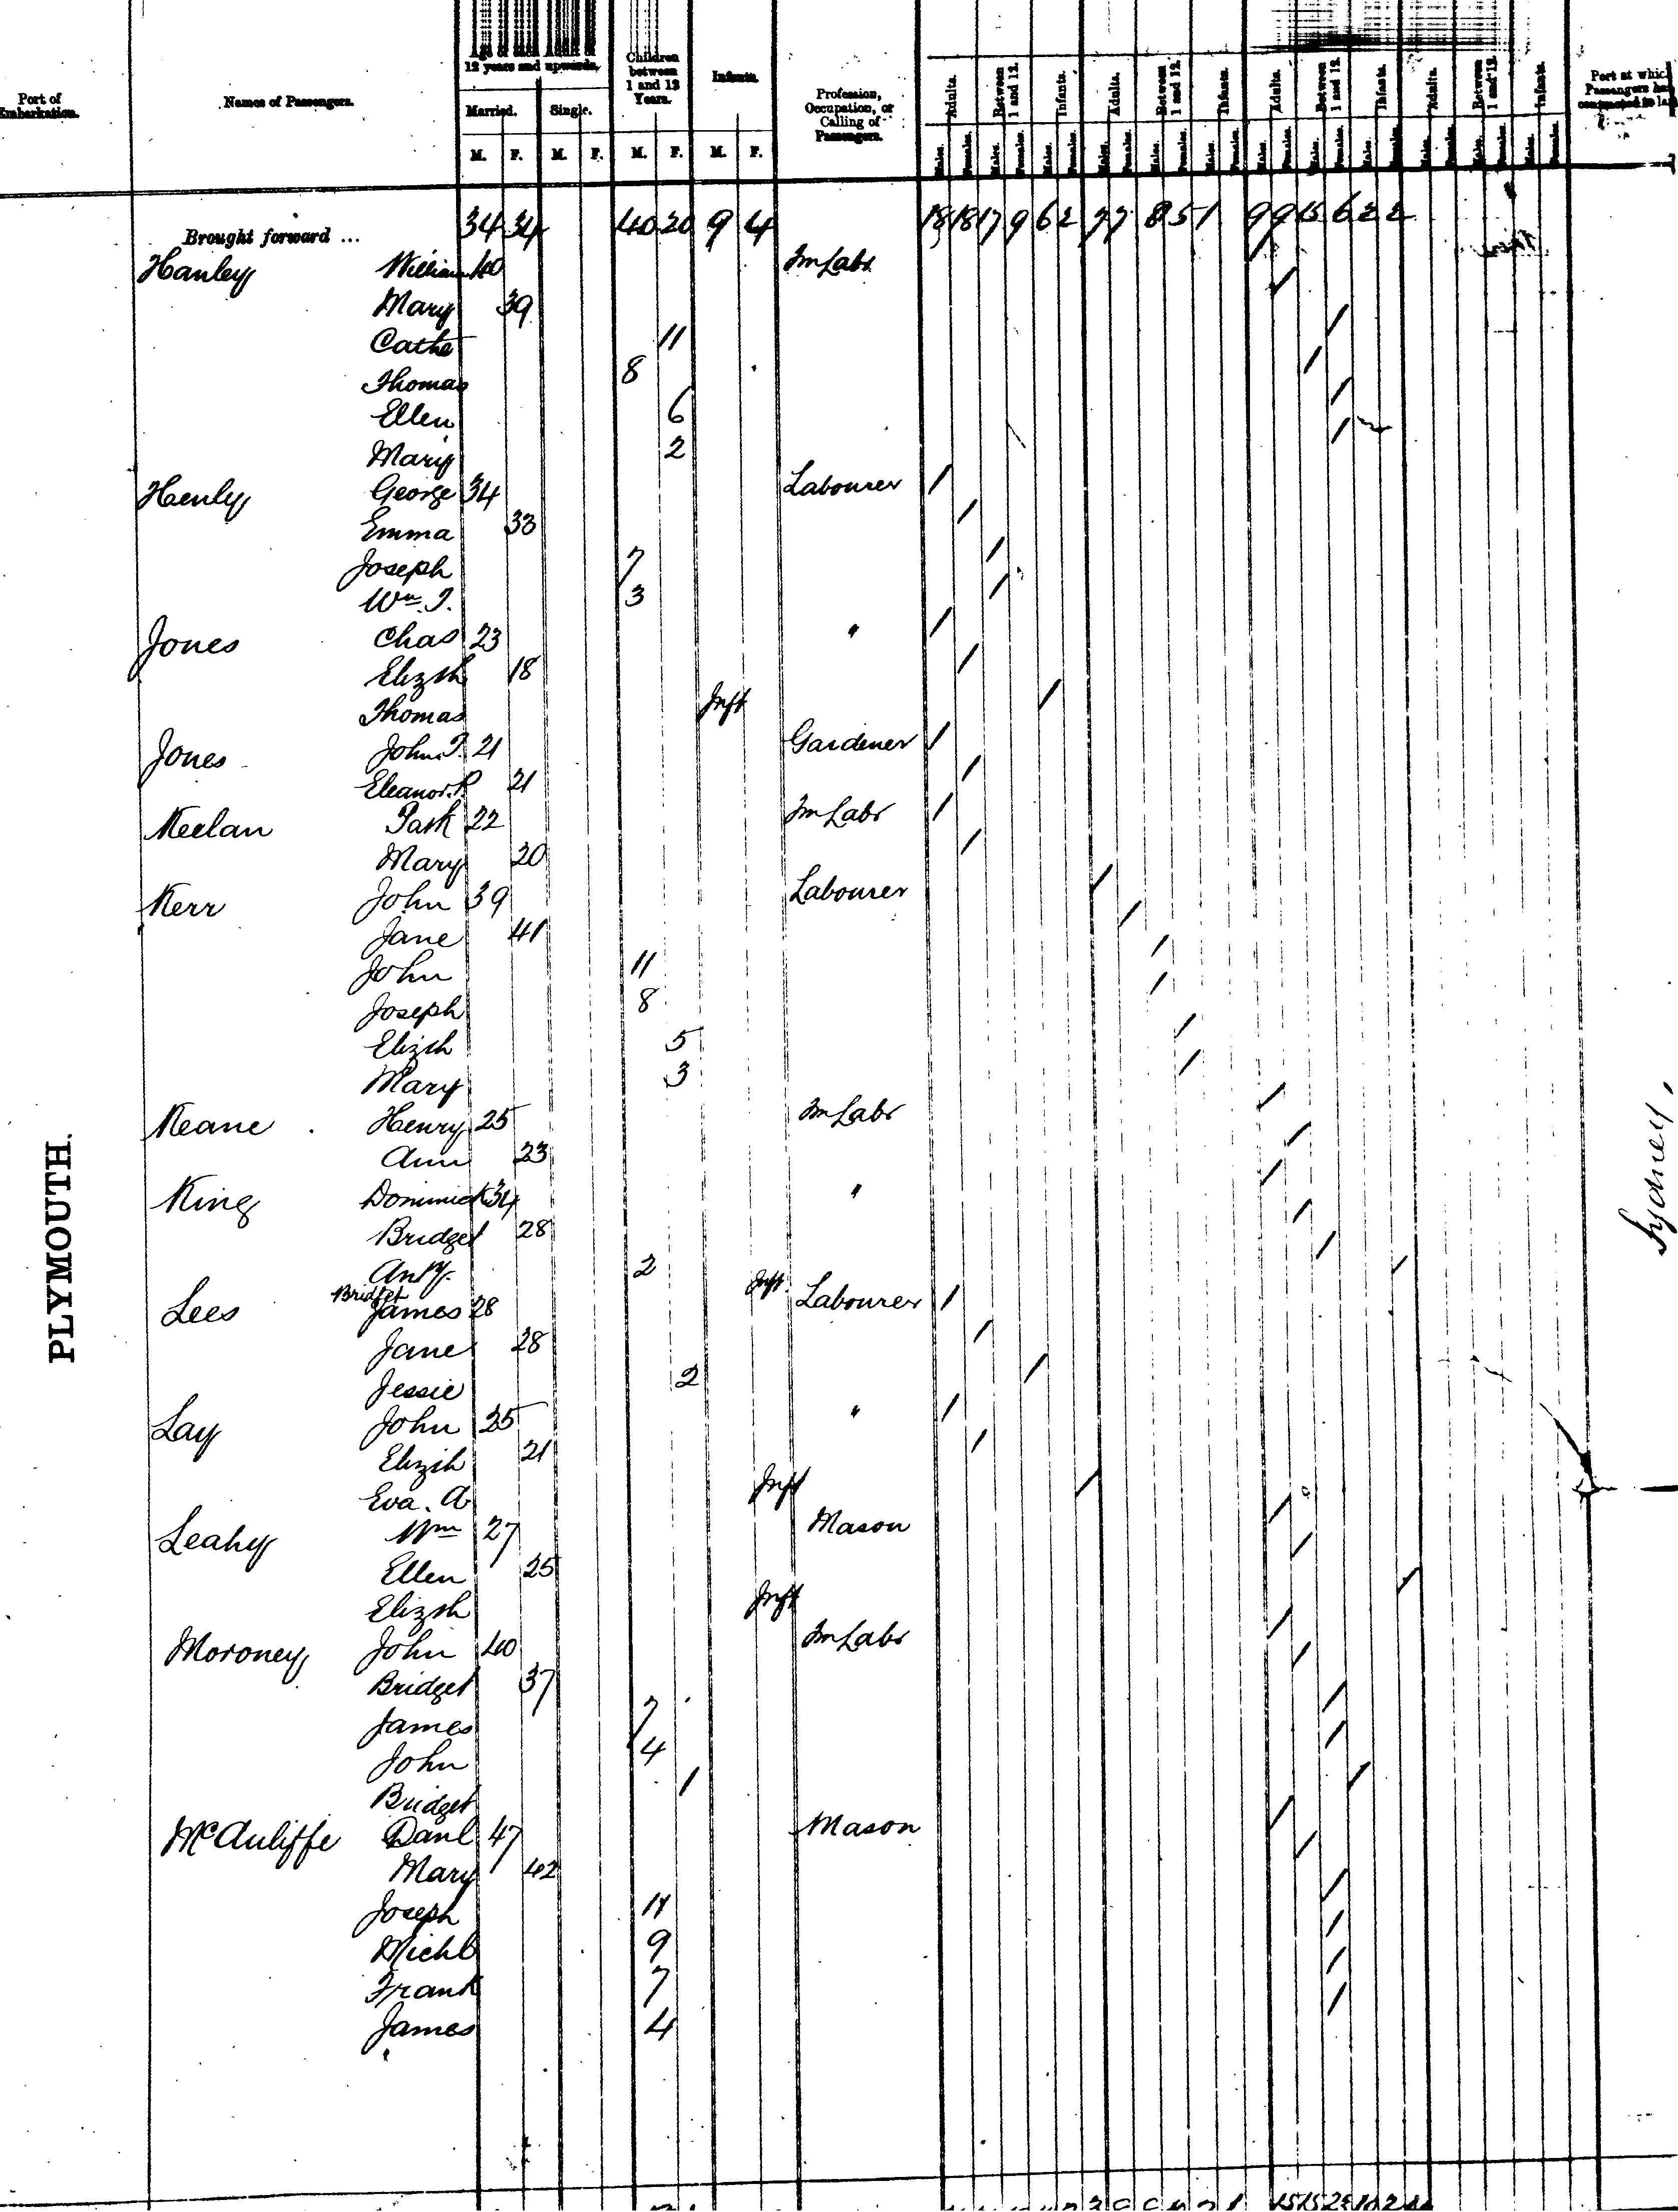 Port of Embarkation.
Names of Passengers.
12 years and upwards.
Married. Single.
M. F. M. F.
Children between 1 and 12 Years.
M. F.
Infants.
M. F.
Profession, Occupation, or Calling of Passengers.
Adults. Between 1 and 12. Infants. Adults. Between 1 and 12. Infants. Adults. Between 1 and 12. Infants. Adults. Between 1 and 12. Infants.
Males. Females. Males. Females. Males. Females. Males. Females. Males. Females. Males. Females. Males. Females. Males. Females. Males. Females. Males. Females. Males. Females. Males. Females.
Port at which Passengers have contracted to la
Brought forward ... 34 34 40 20 9 4 18 18 17 9 6 2 7 7 8 5 1 9 9 15 6 2 2
Hanley William 40 Fm Labr
Mary 39
Cathe 11
Thomas 8
Ellen 6
Mary 2
Henly George 34 Labourer
Emma 33
Joseph 7
Wm. T. 3
Jones Chas 23 "
Elizth 18
Thomas Inft
Jones John T. 21 Gardener
Eleanor. R 21
Keelan Patk 22 Fm Labr
Mary 20
Kerr John 39 Labourer
Jane 41
John 11
Joseph 8
Elizth 5
Mary 3
Keane Henry 25 Fm Labr
Ann 23
King Dominick 34 "
Bridget 28
Anty. 2
Bridget Inft.
Lees James 28 Labourer
Jane 28
Jessie 2
Lay John 25 "
Elizth 21
Eva. A Inft
Leahy Wm 27 Mason
Ellen 25
Elizth Inft
Moroney John 40 Fm Labr
Bridget 37
James 7
John 4
Bridget 1
McAuliffe Danl 47 Mason
Mary 42
Joseph 11
Michl 9
Frank 7
James 4
PLYMOUTH.
Sydney,